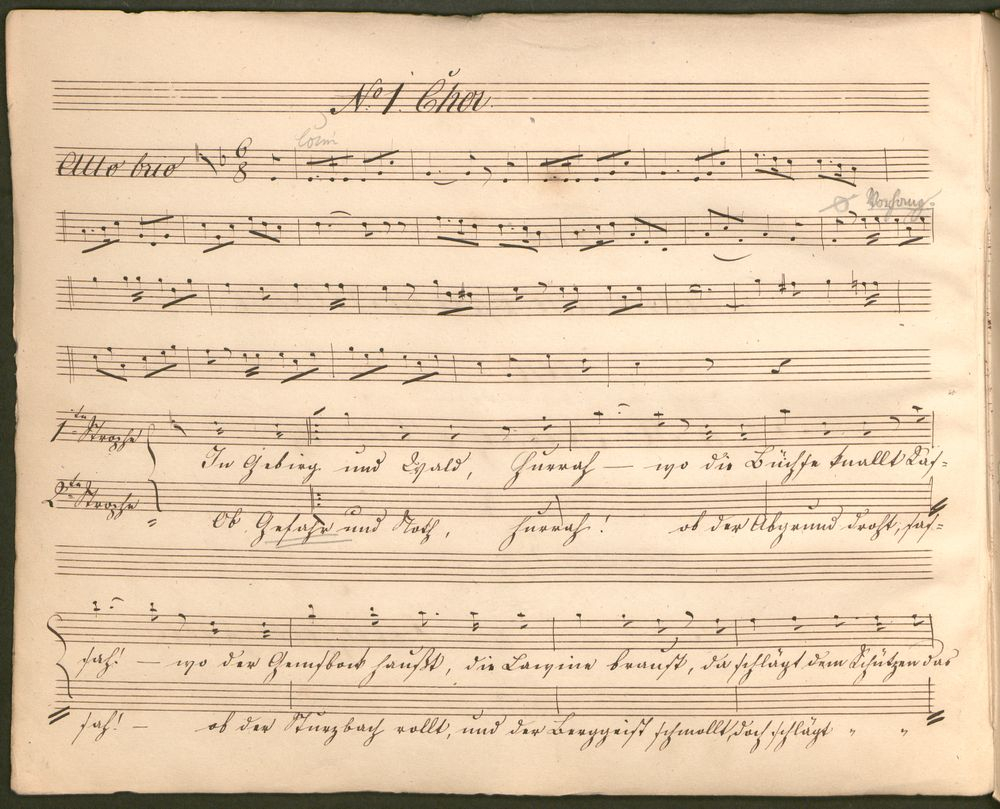 No 1. Chor.
Corni
Allo brio 6 8
Vorhang.
1te Strophe
In Gebirg und Wald, hurrah — wo die Büchse knallt Sas=
2te Strophe
Ob Gefahr und Noth, hurrah! ob der Abgrund droht, sas=
sah! — wo der Gemsbock haußt, die Lawine braust, da schlägt dem Schützen das
sah! — ob der Sturzbach rollt, und der Berggeist schmollt, doch schlägt " "